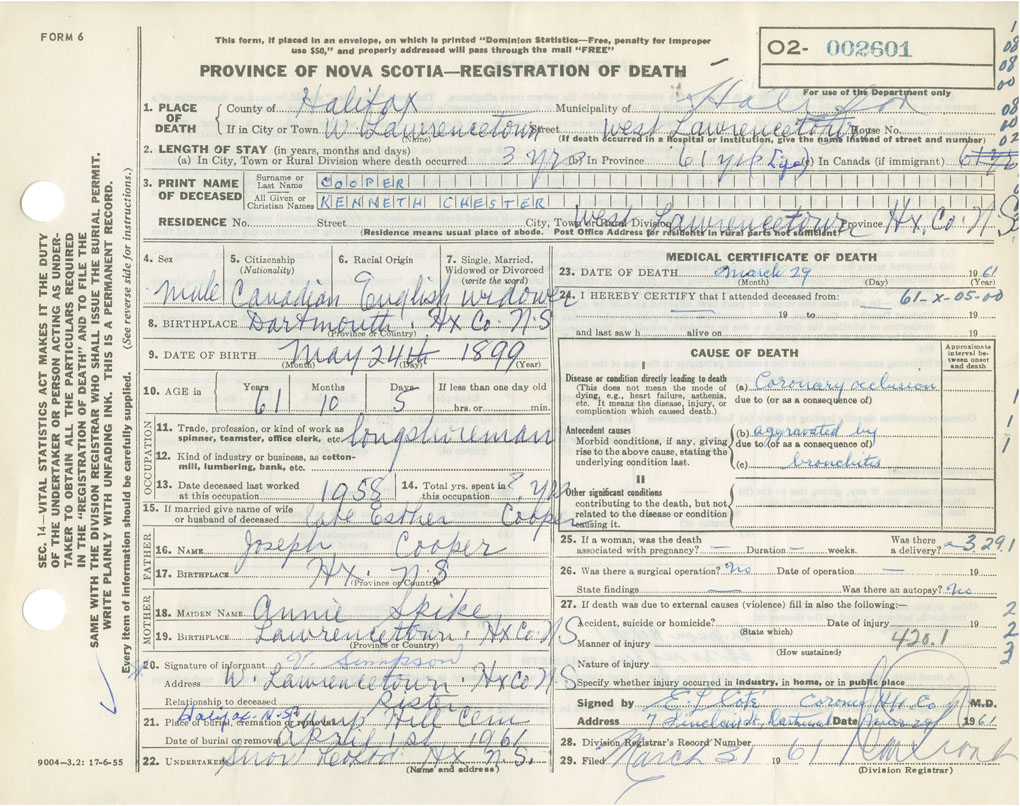 FORM 6
This form, if placed in an envelope, on which is printed "Dominion Statistics—Free, penalty for improper
use $50," and properly addressed will pass through the mail "FREE"
PROVINCE OF NOVA SCOTIA—REGISTRATION OF DEATH
02- 002601
For use of the Department only
SEC. 14—VITAL STATISTICS ACT MAKES IT THE DUTY
OF THE UNDERTAKER OR PERSON ACTING AS UNDER-
TAKER TO OBTAIN ALL THE PARTICULARS REQUIRED
IN THE "REGISTRATION OF DEATH" AND TO FILE THE
SAME WITH THE DIVISION REGISTRAR WHO SHALL ISSUE THE BURIAL PERMIT.
WRITE PLAINLY WITH UNFADING INK. THIS IS A PERMANENT RECORD.
Every item of information should be carefully supplied. (See reverse side for instructions.)
1. PLACE OF DEATH County of Halifax Municipality of Halifax
If in City or Town W Lawrencetown Street West Lawrencetown House No.
(Name) (If death occurred in a Hospital or Institution, give the name instead of street and number)
2. LENGTH OF STAY (in years, months and days)
(a) In City, Town or Rural Division where death occurred 3 yrs In Province 61 yrs (life) In Canada (if immigrant)
3. PRINT NAME OF DECEASED Surname or Last Name COOPER
All Given or Christian Names KENNETH CHESTER
RESIDENCE No. Street City, Town or Rural Division West Lawrencetown Province Hx Co. N S
(Residence means usual place of abode. Post Office Address for residents in rural parts not sufficient)
4. Sex 5. Citizenship (Nationality) 6. Racial Origin 7. Single, Married, Widowed or Divorced (write the word)
male Canadian English widower
8. BIRTHPLACE Dartmouth. Hx Co. N.S
(Province or Country)
9. DATE OF BIRTH May 24th 1899
(Month) (Day) (Year)
10. AGE in Years Months Days If less than one day old
61 10 5 hrs. or min.
OCCUPATION
11. Trade, profession, or kind of work as spinner, teamster, office clerk, etc. longshoreman
12. Kind of industry or business, as cotton-mill, lumbering, bank, etc.
13. Date deceased last worked at this occupation 1958 14. Total yrs. spent in this occupation ? yrs
15. If married give name of wife or husband of deceased late Esther Cooper
FATHER
16. NAME Joseph Cooper
17. BIRTHPLACE Hx. N.S
(Province or Country)
MOTHER
18. MAIDEN NAME Annie Spike
19. BIRTHPLACE Lawrencetown. Hx Co. N S
(Province or Country)
20. Signature of informant V. Simpson
Address W. Lawrencetown. Hx Co N S
Relationship to deceased Sister
21. Place of burial, cremation or removal Halifax N.S. Hill Cem
Date of burial or removal April 1st 1961
22. UNDERTAKER Snow Hx N.S.
(Name and address)
9004—3.2: 17-6-55
MEDICAL CERTIFICATE OF DEATH
23. DATE OF DEATH March 29 1961
(Month) (Day) (Year)
24. I HEREBY CERTIFY that I attended deceased from: 61-X-05-00
— 19 to — 19
and last saw h alive on 19
CAUSE OF DEATH
Approximate interval between onset and death
I
Disease or condition directly leading to death (a) Coronary occlusion
(This does not mean the mode of dying, e.g., heart failure, asthenia, etc. It means the disease, injury, or complication which caused death.) due to (or as a consequence of)
Antecedent causes (b) aggravated by
Morbid conditions, if any, giving rise to the above cause, stating the underlying condition last. due to (or as a consequence of)
(c) bronchitis
II
Other significant conditions
contributing to the death, but not related to the disease or condition causing it.
25. If a woman, was the death associated with pregnancy? — Duration — weeks. Was there a delivery?
26. Was there a surgical operation? No Date of operation — 19
State findings — Was there an autopsy? No
27. If death was due to external causes (violence) fill in also the following:—
Accident, suicide or homicide? Date of injury 19
(State which)
Manner of injury 420.1
(How sustained)
Nature of injury
Specify whether injury occurred in industry, in home, or in public place
Signed by Coroner Hx Co M.D.
Address Date Mar 29 1961
28. Division Registrar's Record Number
29. Filed March 31 1961
(Division Registrar)